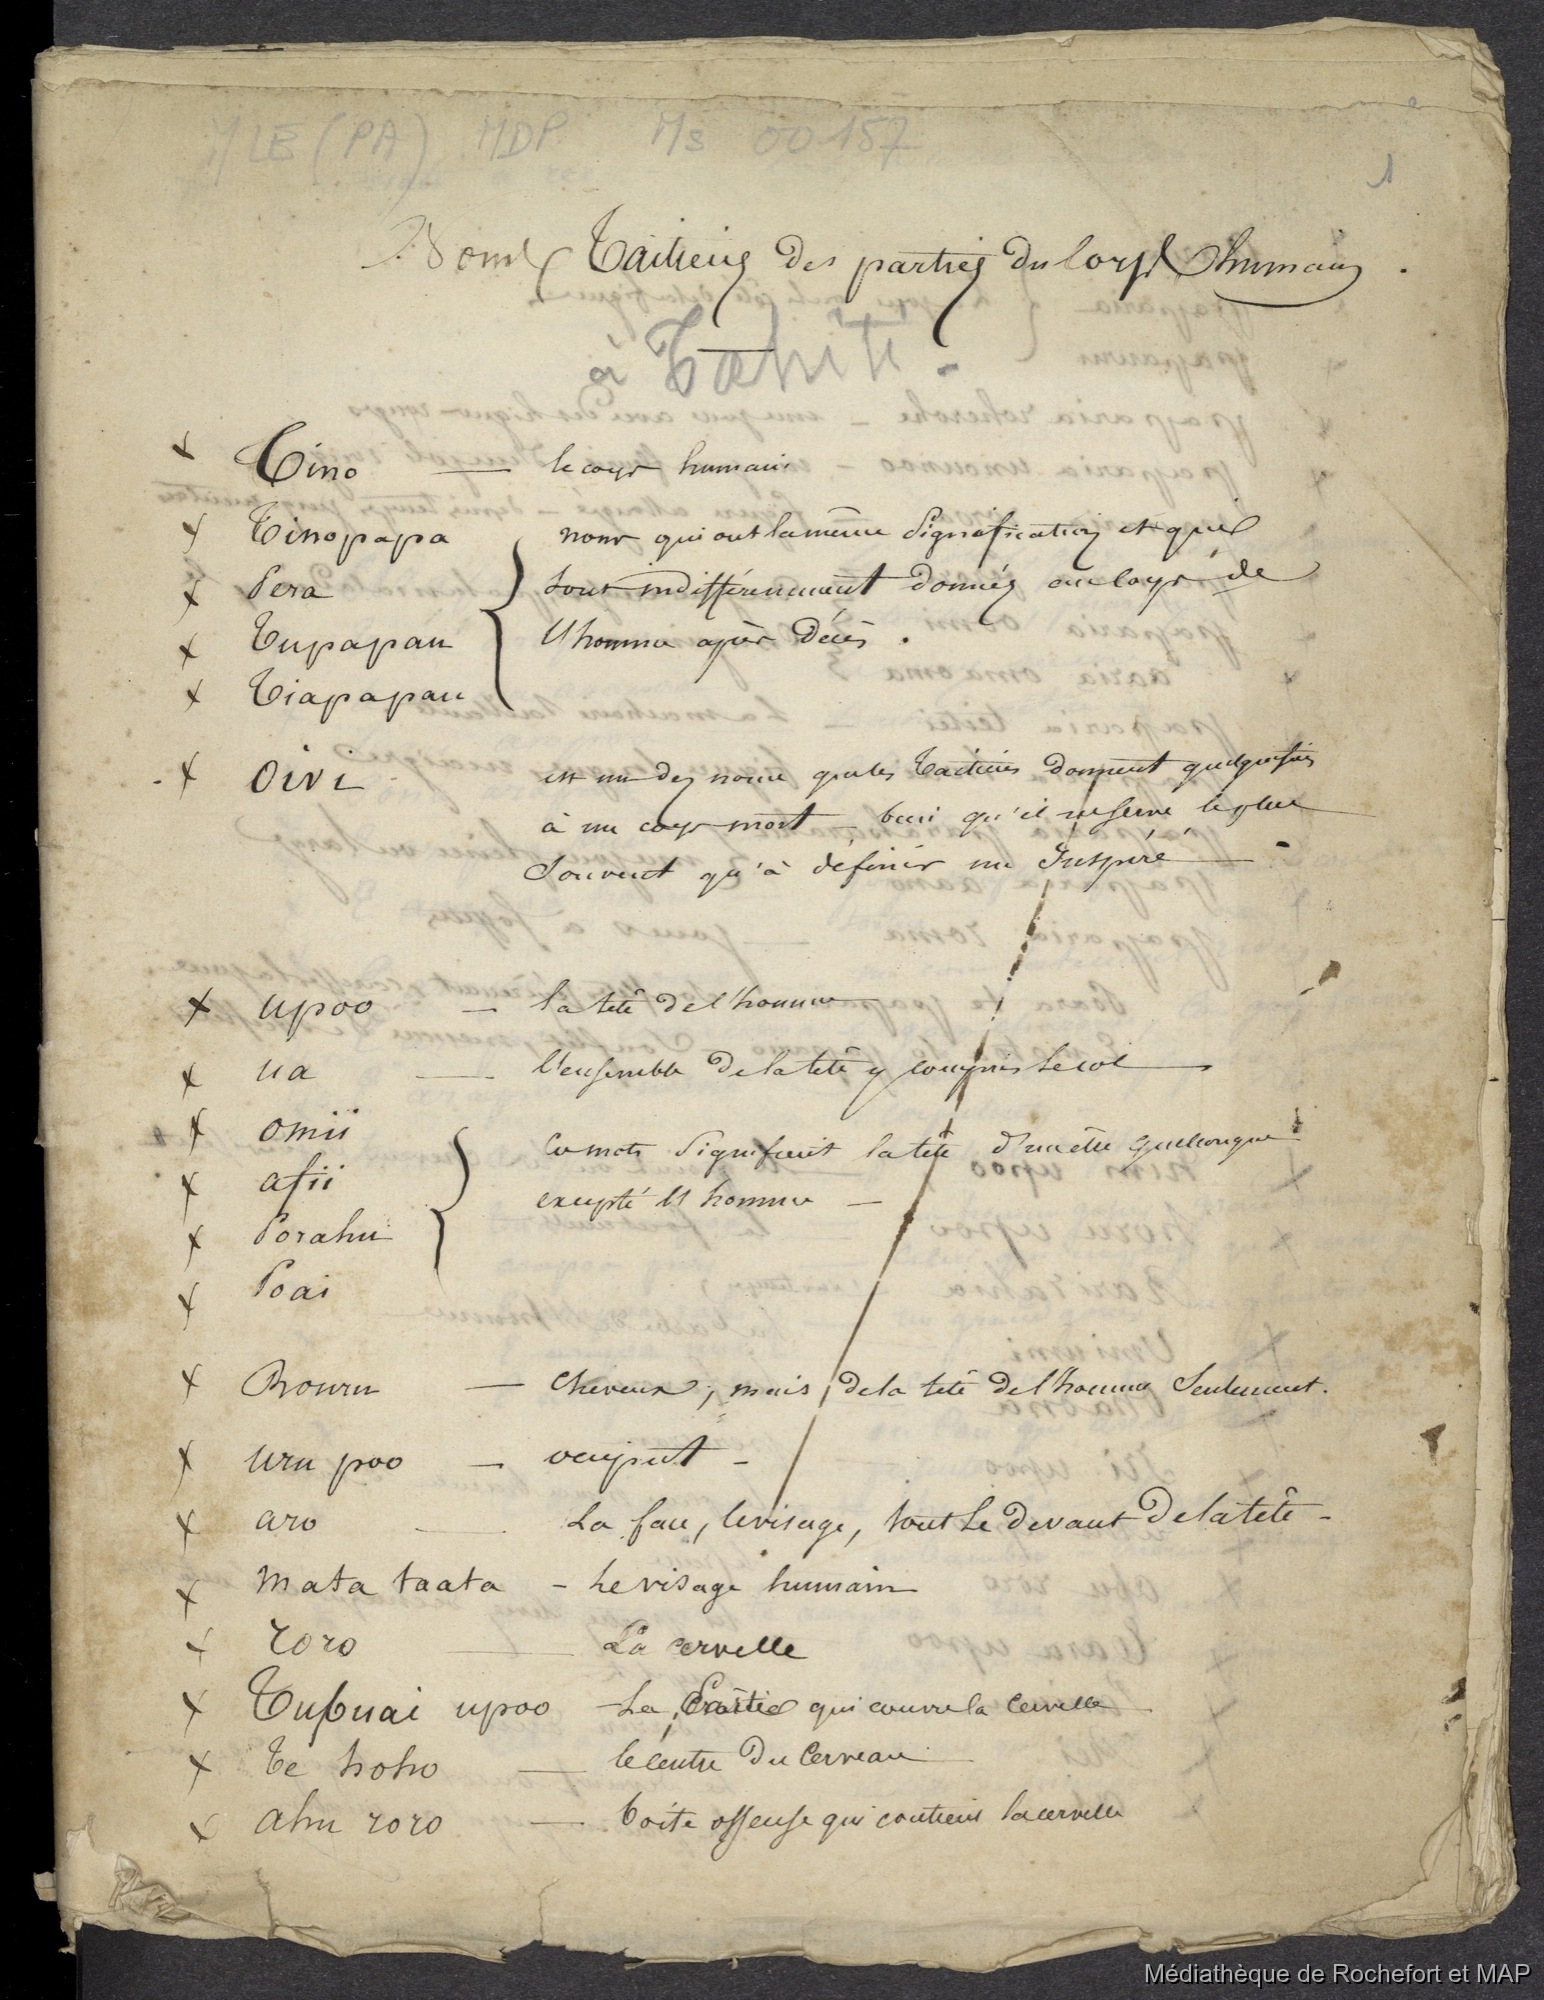 MLE (PA) MDP Ms 00157
1
Noms Taïtiens des parties du Corps humain.
à Tahiti.
x Tino — le corps humain
x Tinopapa
x Pera
x Tupapau
x Tiapapau
noms qui ont la même signification et que
sont indifféremment donnés au corps de
l'homme après décès.
x Oivi
est un des noms que les Taïtiens donnent quelquefois
à un corps mort - bien qu'il ne serve le plus
souvent qu'à définir un Inspiré —
x upoo — la tête de l'homme
x ua — l'ensemble de la tête y compris le col
x omii
x afii
x Porahu
x Poai
Ces mots signifient la tête d'un être quelconque
excepté l'homme —
x Rouru — cheveux, mais de la tête de l'homme seulement.
x uru poo — occiput -
x aro — La face, le visage, tout le devant de la tête -
x mata taata - Le visage humain
x roro — La cervelle
x Tupuai upoo - La Partie qui couvre la cervelle
x Te hoho — le centre du Cerveau
x ahu roro — boîte osseuse qui contient la cervelle
Médiathèque de Rochefort et MAP